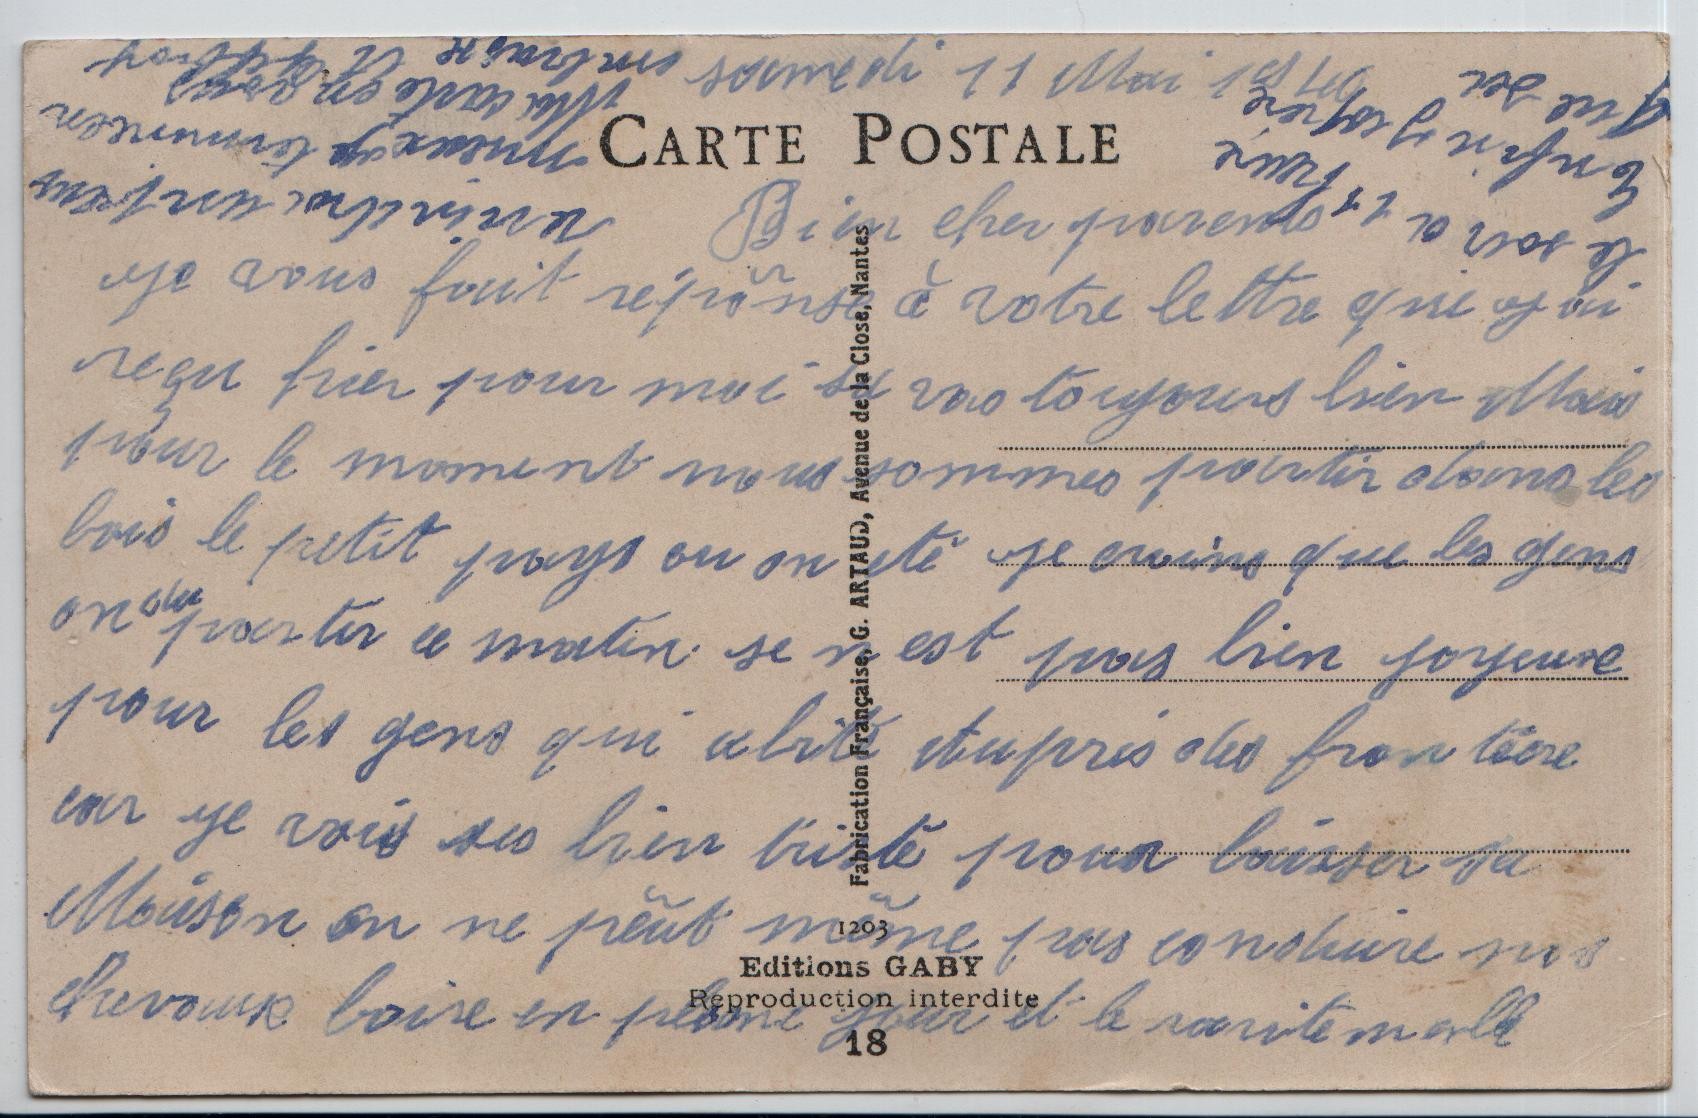 samedi 11 Mai 1940
CARTE POSTALE
Bien cher parents
je vous fait réponse à votre lettre que j ai
reçu hier pour moi sa vas toujours bien Mais
pour le moment nous sommes partir dans les
bois le petit pays ou on été je crains que les gens
on du partir ce matin se n est pas bien joyeuxe
pour les gens qui abité aupres des frontière
car je vois ses bien triste pour laisser sa
Maison on ne peut même pas conduire nos
chevaux boire en pleine jour et le ravitemalle
Fabrication Française, G. ARTAUD, Avenue de la Close, Nantes
1203
Editions GABY
Reproduction interdite
18
le soir a 11 heure
Enfin j espère
que ses
mieux je termine en
Ma carte en vous
embrasse